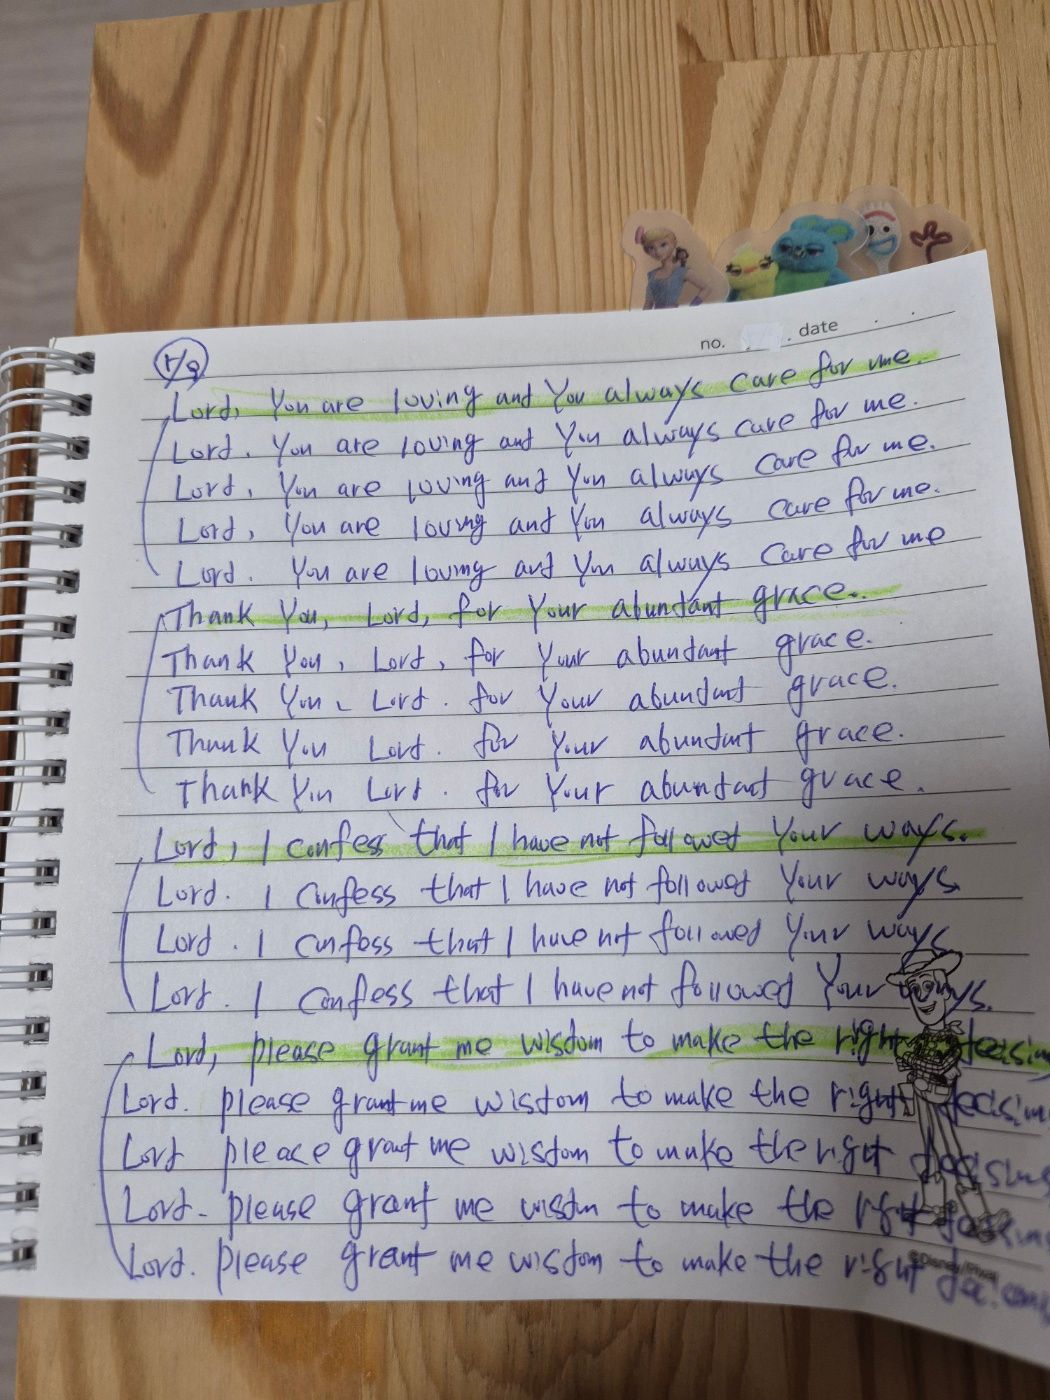 no. date
1/9
Lord, You are loving and You always care for me.
Lord. You are loving and You always care for me.
Lord, You are loving and You always care for me.
Lord, You are loving and You always care for me.
Lord. You are loving and You always care for me
Thank You, Lord, for Your abundant grace..
Thank You, Lord, for Your abundant grace.
Thank You, Lord. for Your abundant grace.
Thank You Lord. for Your abundant grace.
Thank You Lord. for Your abundant grace.
Lord, I confess that I have not followed Your ways.
Lord. I confess that I have not followed Your ways
Lord. I confess that I have not followed Your ways
Lord. I confess that I have not followed Your ways.
Lord, please grant me wisdom to make the right
Lord. please grant me wisdom to make the right
Lord please grant me wisdom to make the right
Lord. please grant me wisdom to make the right
Lord. please grant me wisdom to make the right
©Disney/Pixar